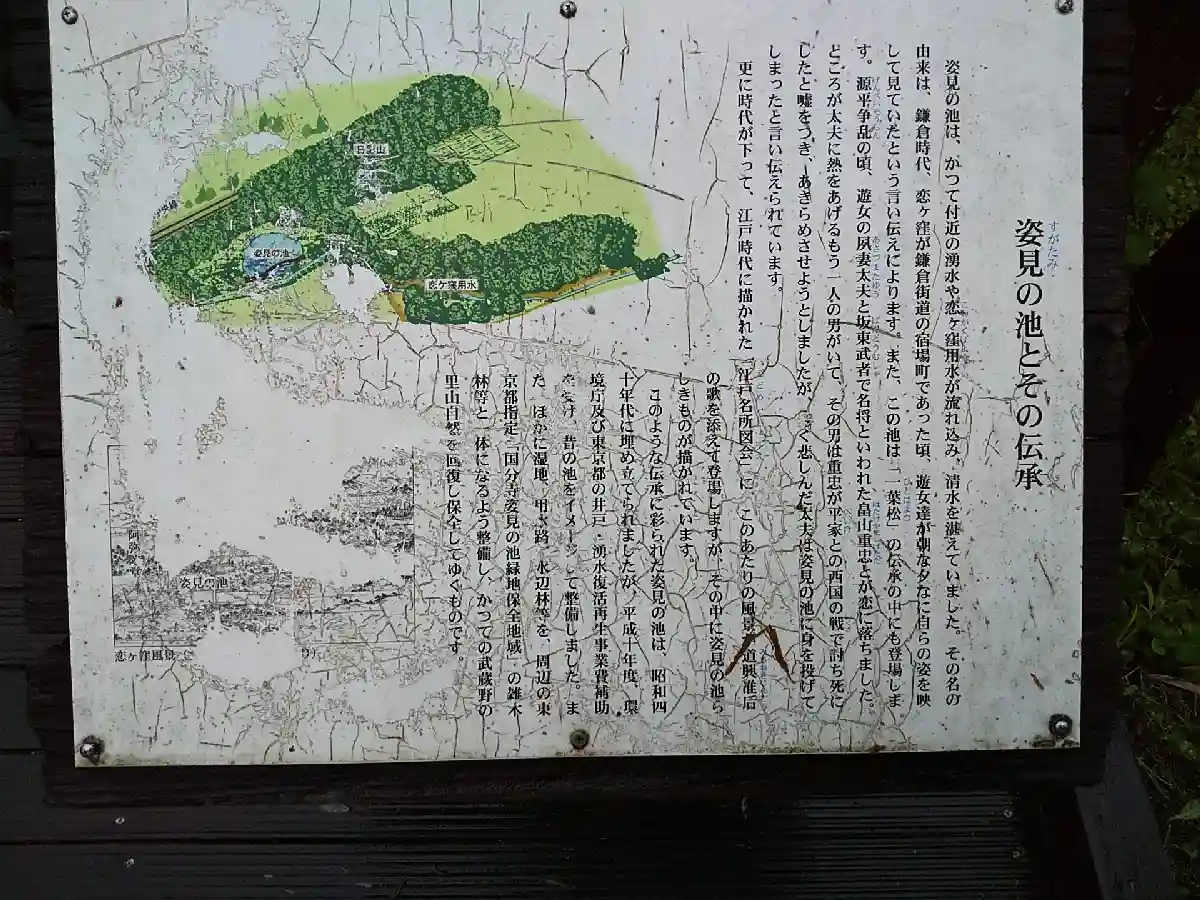 姿見の池とその伝承
すがたみ
姿見の池は、かつて付近の湧水や恋ヶ窪用水が流れ込み、清水を湛えていました。その名の
由来は、鎌倉時代、恋ヶ窪が鎌倉街道の宿場町であった頃、遊女達が朝な夕なに自らの姿を映
して見ていたという言い伝えによります。また、この池は「一葉松」の伝承の中にも登場しま
す。源平争乱の頃、遊女の夙妻太夫と坂東武者で名将といわれた畠山重忠とが恋に落ちました。
ところが太夫に熱をあげるもう一人の男がいて、その男は重忠が平家との西国の戦で討ち死に
したと嘘をつき、あきらめさせようとしましたが、く悲しんだ太夫は姿見の池に身を投げて
しまったと言い伝えられています。
更に時代が下って、江戸時代に描かれた「江戸名所図会」に、このあたりの風景が道興准后
の歌を添えて登場しますが、その中に姿見の池ら
しきものが描かれています。
このような伝承に彩られた姿見の池は、昭和四
十年代に埋め立てられましたが、平成十年度、環
境庁及び東京都の井戸・湧水復活再生事業費補助
を受け、昔の池をイメージして整備しました。ま
た、ほかに湿地、用水路、水辺林等を、周辺の東
京都指定「国分寺姿見の池緑地保全地域」の雑木
林等と一体になるよう整備し、かつての武蔵野の
里山自然を回復し保全してゆくものです。
日影山
姿見の池
恋ヶ窪用水
阿弥
姿見の池
恋ヶ窪風景